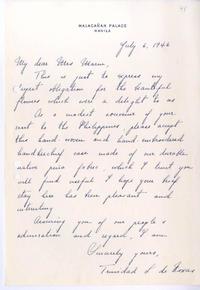 MALACAÑAN PALACE
MANILA
July 6, 1946
My dear Mrs
This is just to express my
obligation for the beautiful
flowers which were a delight to us.
As a modest souvenir of your
visit to the Philippines, please accept
this hand-woven and hand embroidered
handkerchief case made of our durable
native piña fabric, which I trust you
will find useful. I hope your brief
stay here has been pleasant and
interesting.
Assuring you of our people's
admiration and regard, I am
Sincerely yours,
Trinidad L. de Roxas